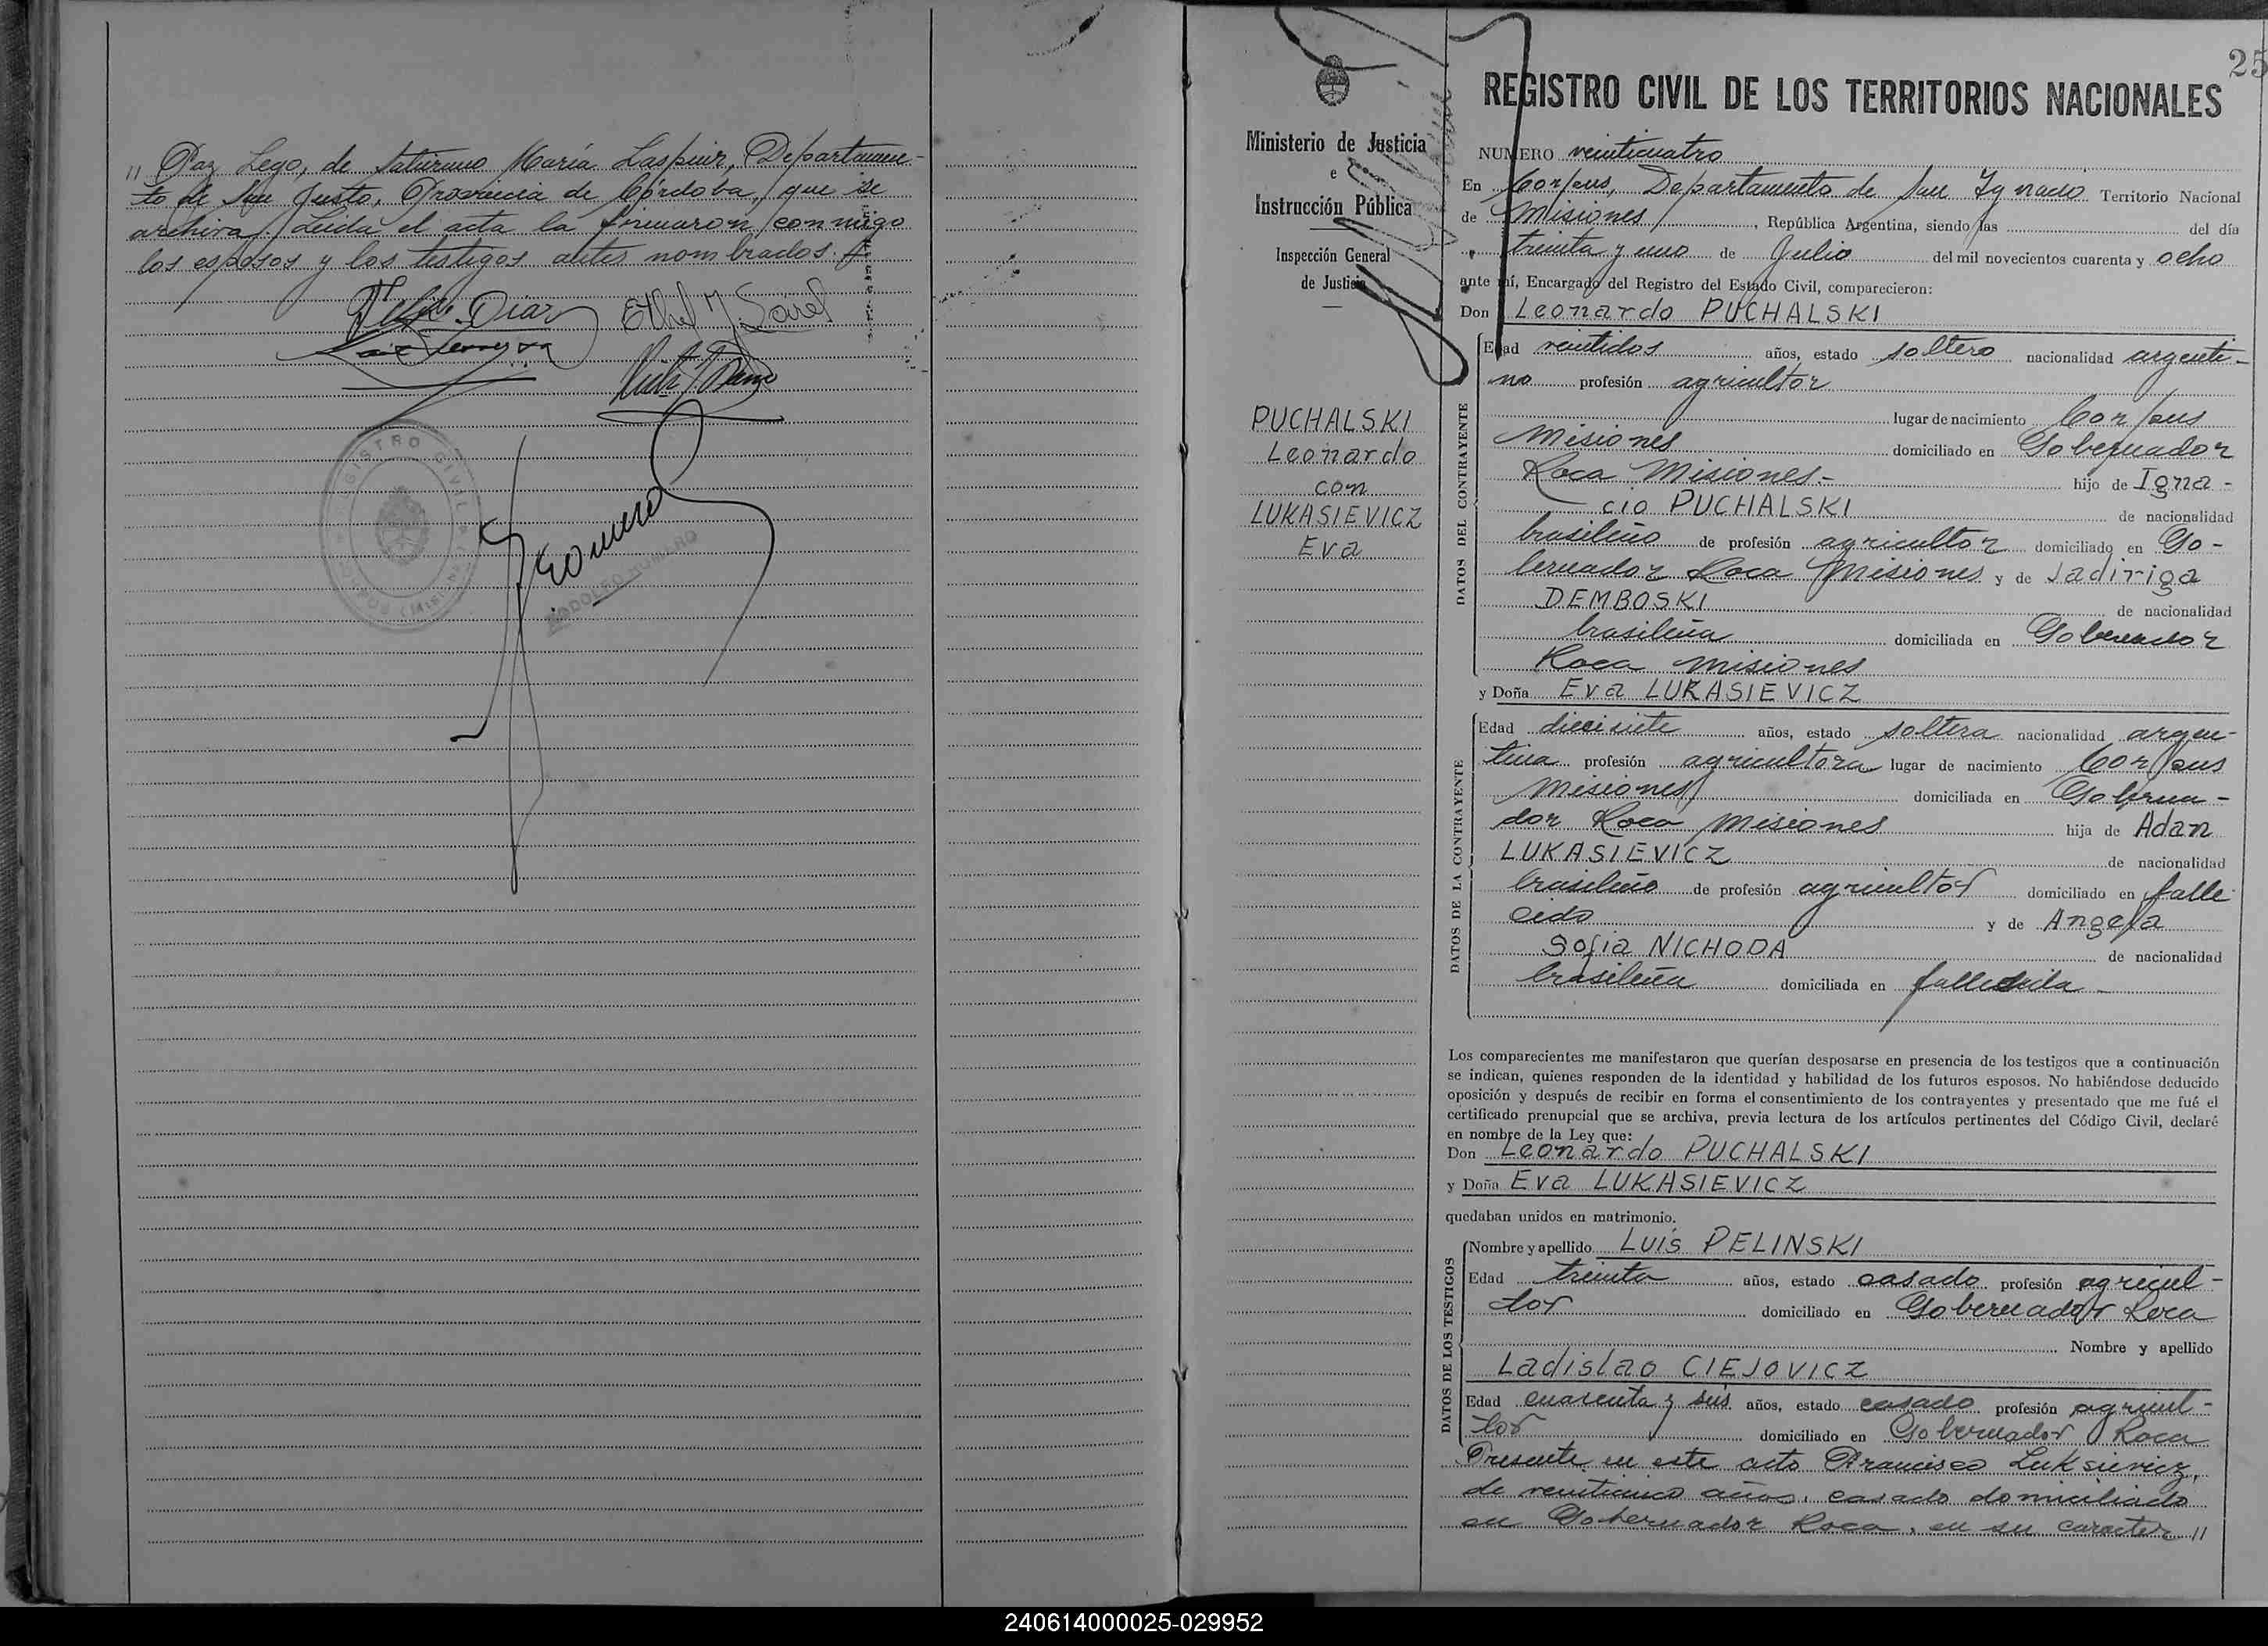 " Paz Lego, de Saturnino María Laspiur, Departamen-
to de San Justo, Provincia de Córdoba, que se
archiva. Leida el acta la firmaron conmigo
los esposos y los testigos antes nombrados.
Díaz Ethel M.
REGISTRO CIVIL
RODOLFO ROMERO
25
Ministerio de Justicia
e
Instrucción Pública
Inspección General
de Justicia
PUCHALSKI
Leonardo
con
LUKASIEVICZ
Eva
REGISTRO CIVIL DE LOS TERRITORIOS NACIONALES
NUMERO veinticuatro
En Corpus, Departamento de San Ignacio Territorio Nacional
de Misiones, República Argentina, siendo las del día
treinta y uno de Julio del mil novecientos cuarenta y ocho
ante mí, Encargado del Registro del Estado Civil, comparecieron:
Don Leonardo PUCHALSKI
DATOS DEL CONTRAYENTE
Edad veintidos años, estado soltero nacionalidad argenti-
no profesión agricultor
lugar de nacimiento Corpus
Misiones domiciliado en Gobernador
Roca Misiones.- hijo de Igna-
cio PUCHALSKI de nacionalidad
brasileño de profesión agricultor domiciliado en Go-
bernador Roca Misiones y de Jadiriga
DEMBOSKI de nacionalidad
brasileña domiciliada en Gobernador
Roca Misiones
y Doña Eva LUKASIEVICZ
DATOS DE LA CONTRAYENTE
Edad diecisiete años, estado soltera nacionalidad argen-
tina profesión agricultora lugar de nacimiento Corpus
Misiones domiciliada en Goberna-
dor Roca Misiones hija de Adan
LUKASIEVICZ de nacionalidad
brasileño de profesión agricultor domiciliado en falle
cido y de Angela
Sofia NICHODA de nacionalidad
brasileña domiciliada en fallecida
Los comparecientes me manifestaron que querían desposarse en presencia de los testigos que a continuación
se indican, quienes responden de la identidad y habilidad de los futuros esposos. No habiéndose deducido
oposición y después de recibir en forma el consentimiento de los contrayentes y presentado que me fué el
certificado prenupcial que se archiva, previa lectura de los artículos pertinentes del Código Civil, declaré
en nombre de la Ley que:
Don Leonardo PUCHALSKI
y Doña Eva LUKASIEVICZ
quedaban unidos en matrimonio.
DATOS DE LOS TESTIGOS
Nombre y apellido Luis PELINSKI
Edad treinta años, estado casado profesión agricul-
tor domiciliado en Gobernador Roca
Nombre y apellido
Ladislao CIEJOVICZ
Edad cuarenta y seis años, estado casado profesión agricul-
tor domiciliado en Gobernador Roca
Presente en este acto Francisco Luksievicz,
de veinticinco años, casado domiciliado
en Gobernador Roca, en su caracter "
240614000025-029952